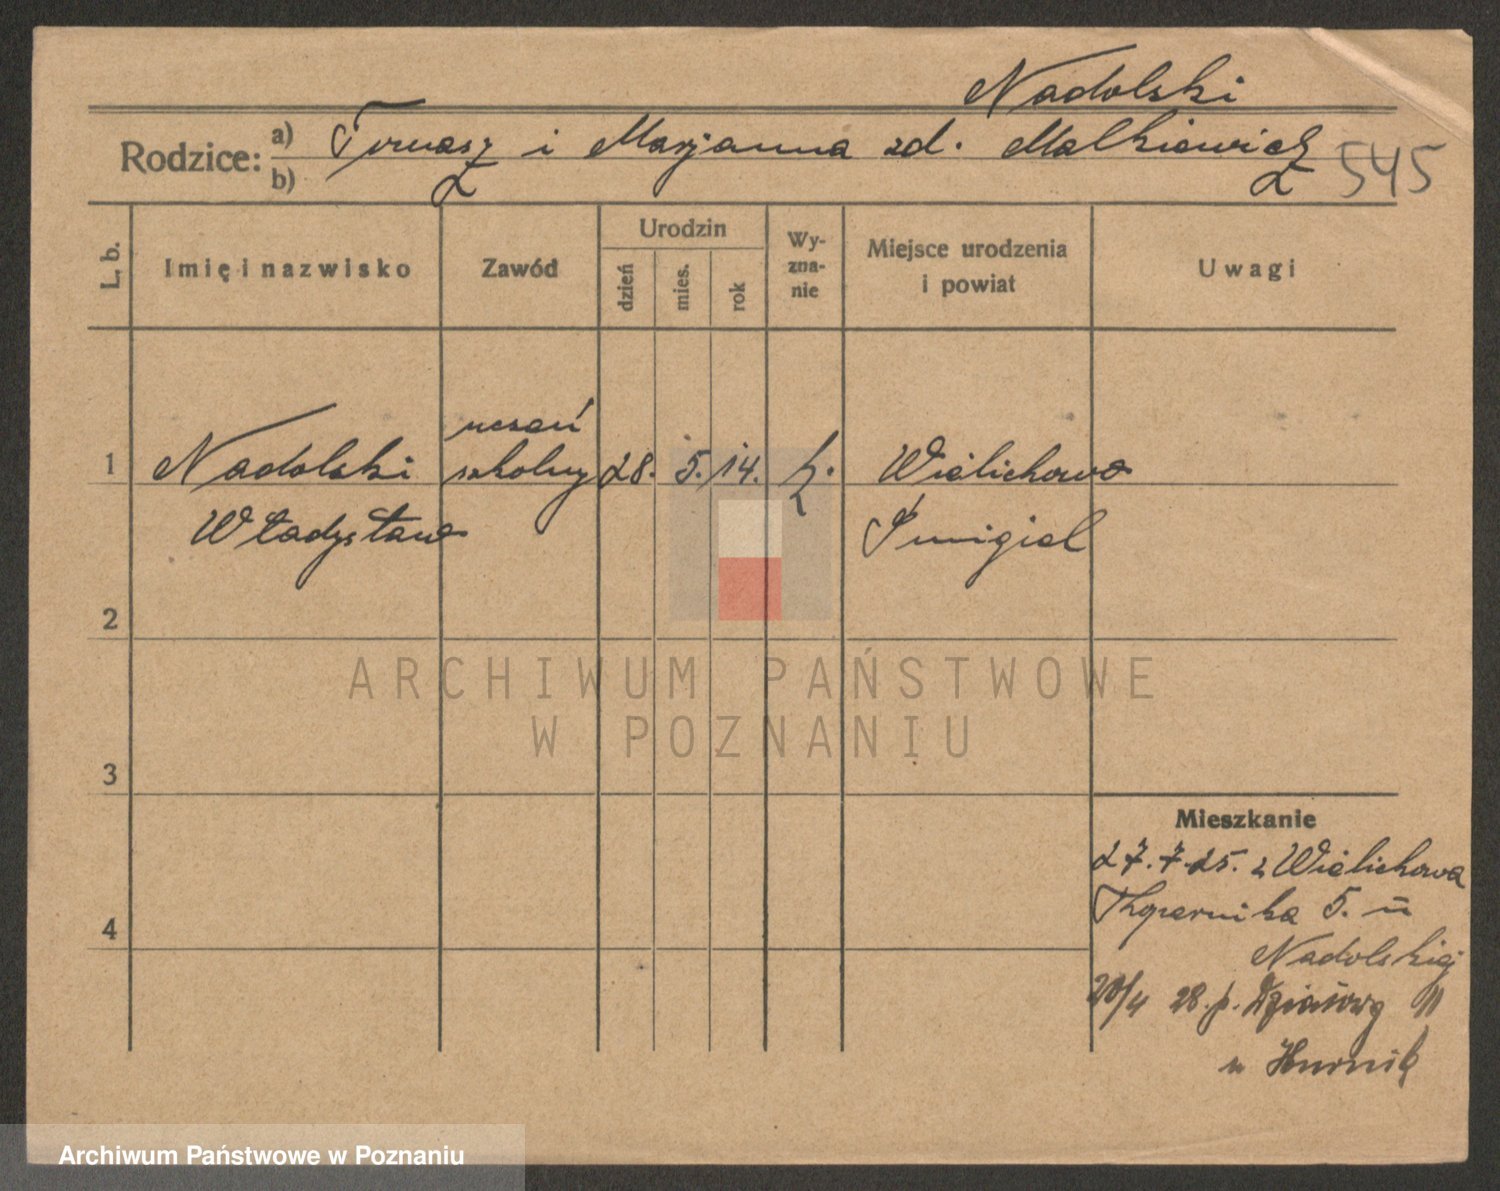 Nadolski
Rodzice: a) Tomasz i Marjanna zd. Malkiewicz
b)
545
L. b.
Imię i nazwisko
Zawód
Urodzin
dzień
mies.
rok
Wy-
zna-
nie
Miejsce urodzenia
i powiat
Uwagi
uczeń
1 Nadolski szkolny 28. 5. 14. k. Wielichowo
Władysław Śmigiel
2
3
4
ARCHIWUM PAŃSTWOWE
W POZNANIU
Mieszkanie
27.7.25. z Wielichowa
Kopernika 5. u
Nadolskiej
20/4 28. p. Działowy 11
u
Archiwum Państwowe w Poznaniu